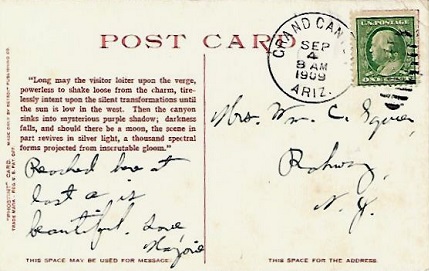 POST CARD
"Long may the visitor loiter upon the verge,
powerless to shake loose from the charm, tire-
lessly intent upon the silent transformations until
the sun is low in the west. Then the canyon
sinks into mysterious purple shadow; darkness
falls, and should there be a moon, the scene in
part revives in silver light, a thousand spectral
forms projected from inscrutable gloom."
Reached here at
last & is
beautiful. Love
THIS SPACE MAY BE USED FOR MESSAGE.
"PHOSTINT" CARD. MADE ONLY BY DETROIT PUBLISHING CO.
GRAND CAN
SEP
4
8 AM
1909
ARIZ.
U.S. POSTAGE
ONE CENT
Mrs. Wm. C. Squier,
Rahway,
N. J.
THIS SPACE FOR THE ADDRESS.